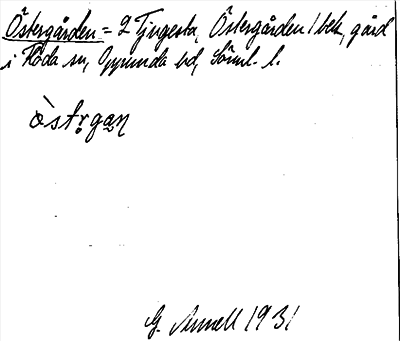 Östergården = 2 Tjugesta, Östergården 1 bek, gård
i Flöda sn, Oppunda hd, Söml. l.
ò̀stṛgan̥
G. Annell 1931